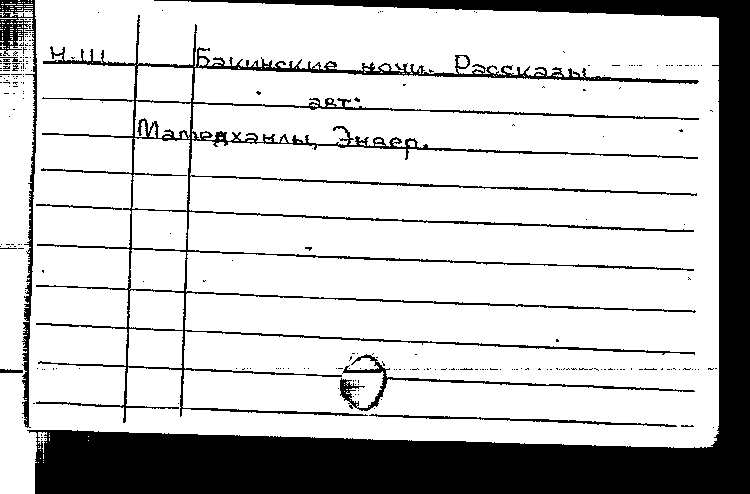 Н.Ш. Бакинские ночи. Рассказы.
авт:
Мамедханлы, Энвер.